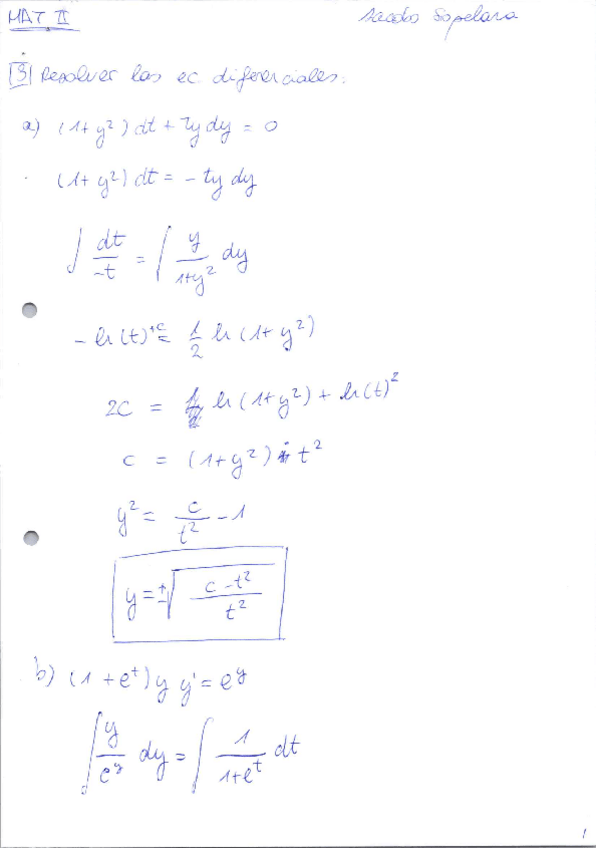 MAT II
3 Resolver las ec. diferenciales.
a) (1+y²) dt + ty dy = 0
(1+y²) dt = - ty dy
∫ dt/-t = ∫ y/(1+y²) dy
- ln(t) +c = 1/2 ln(1+y²)
2c = ln(1+y²) + ln(t)²
c = (1+y²) · t²
y² = c/t² - 1
y = ±√((c - t²)/t²)
b) (1 + e^t) y y' = e^y
∫ y/e^y dy = ∫ 1/(1+e^t) dt
1